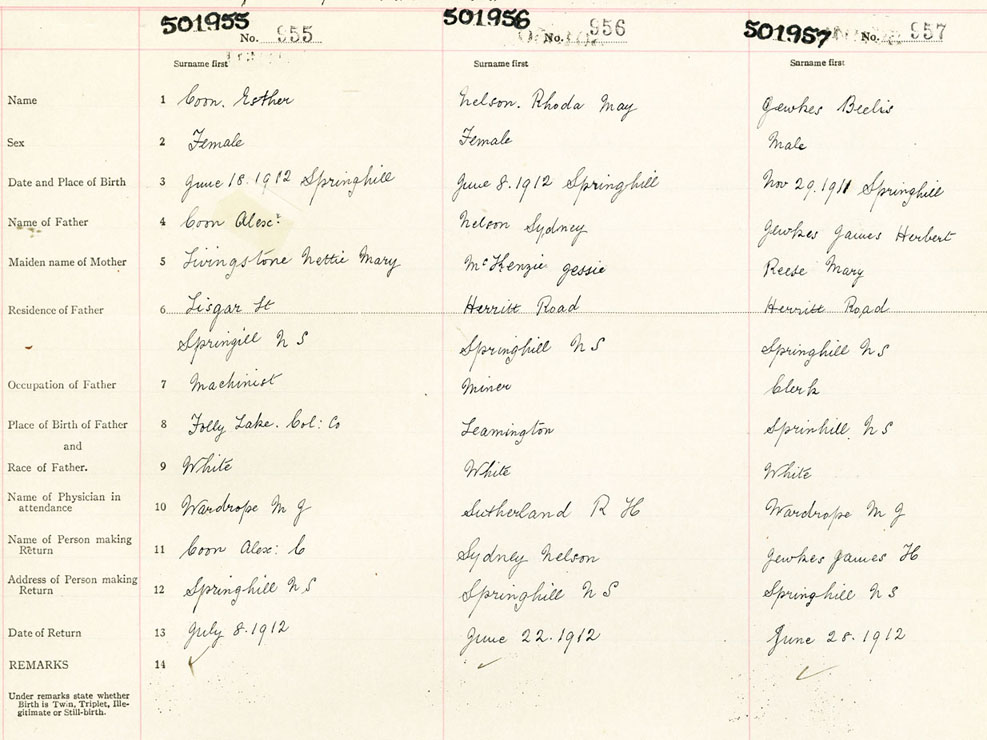 501955 No. 955 501956 No. 956 501957 No. 957
Surname first Surname first Surname first
Name 1 Coon. Esther Nelson. Rhoda May Jewkes Beelis
Sex 2 Female Female Male
Date and Place of Birth 3 June 18.1912 Springhill June 8.1912 Springhill Nov 29.1911 Springhill
Name of Father 4 Coon Alex: Nelson Sydney Jewkes James Herbert
Maiden name of Mother 5 Livingstone Nettie Mary McKenzie Jessie Reese Mary
Residence of Father 6 Lisgar St Herritt Road Herritt Road
Springill N S Springhill N S Springhill N S
Occupation of Father 7 Machinist Miner Clerk
Place of Birth of Father 8 Folly Lake. Col: Co Leamington Sprinhill. N S
and
Race of Father. 9 White White White
Name of Physician in
attendance 10 Wardrope M J Sutherland R H Wardrope M J
Name of Person making
Return 11 Coon Alex: C Sydney Nelson Jewkes James H
Address of Person making
Return 12 Springhill N S Springhill N S Springhill N S
Date of Return 13 July 8.1912 June 22.1912 June 28.1912
REMARKS 14
Under remarks state whether
Birth is Twin, Triplet, Ille-
gitimate or Still-birth.